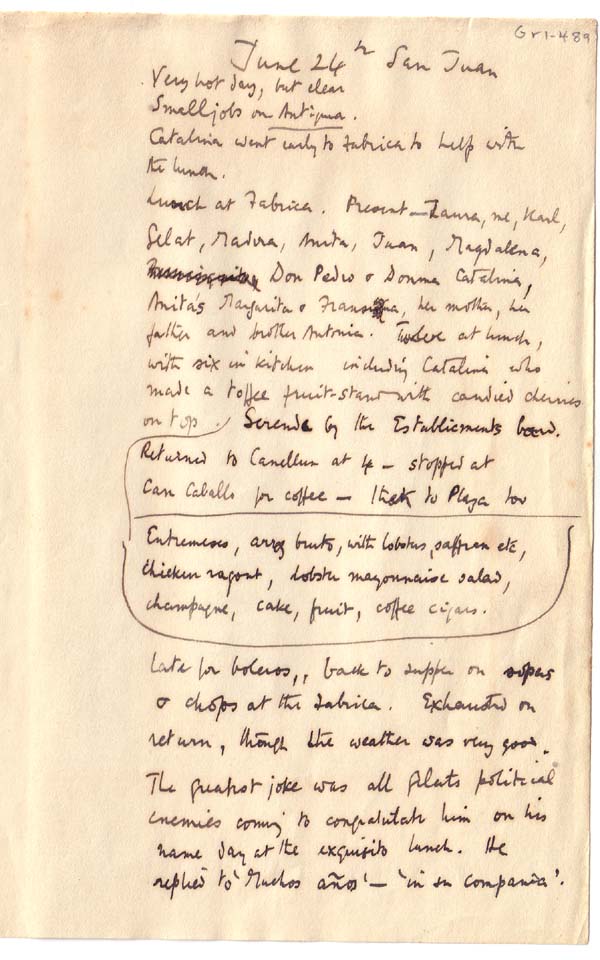 Gr1-489
June 24th San Juan
Very hot day, but clear
Small jobs on Antigua.
Catalina went early to Fabrica to help with
the lunch.
Lunch at Fabrica. Present — Laura, me, Karl,
Gelat, Madora, Anita, Juan, Magdalena,
Don Pedro & Donna Catalina,
Anita's Margarita & her mother, her
father and brother Antonia. Twelve at lunch,
with six in kitchen including Catalina who
made a toffee fruit-stand with candied cherries
on top. Serende by the Establicments
Returned to Canellun at 4 — stopped at
Can Caballo for coffee — to Plaza
Entremeses, arroz bruto, with lobster, saffron etc,
chicken ragout, lobster mayonnaise salad,
champagne, cake, fruit, coffee cigars.
Late for boleros,, back to supper on sopas
& chops at the Fabrica. Exhausted on
return, though the weather was very good.
The greatest joke was all Gelats political
enemies coming to congratulate him on his
name day at the exquisito lunch. He
replied to 'Muchos años' — 'in su compania'.